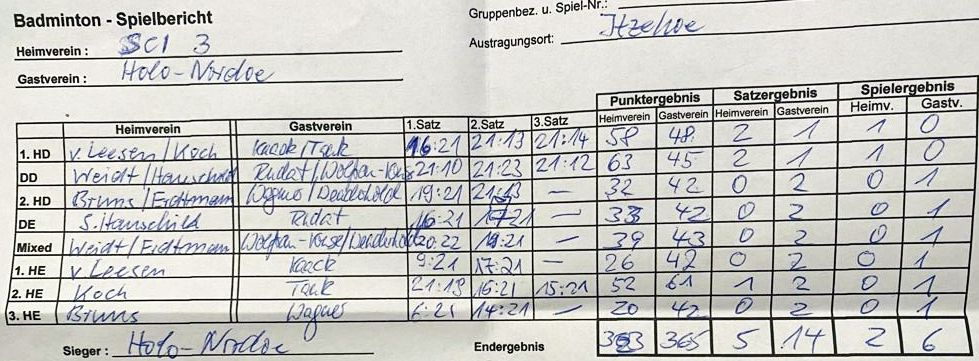 Badminton - Spielbericht
Gruppenbez. u. Spiel-Nr.:
Heimverein : SCI 3
Austragungsort: Itzehoe
Gastverein : Holo-Nordoe
Punktergebnis Satzergebnis Spielergebnis
Heimverein Gastverein 1.Satz 2.Satz 3.Satz Heimverein Gastverein Heimverein Gastverein Heimv. Gastv.
1. HD v. Leesen/Koch Kaack/Tank 16:21 21:13 21:14 58 48 2 1 1 0
DD Weidt/Hauschild Rudat/ 21:10 21:23 21:12 63 45 2 1 1 0
2. HD Bruns/Erdtmann Wagner/ 19:21 – 32 42 0 2 0 1
DE S. Hauschild Rudat 16:21 17:21 – 33 42 0 2 0 1
Mixed Weidt/Erdtmann 20:22 19:21 – 39 43 0 2 0 1
1. HE v. Leesen Kaack 9:21 17:21 – 26 42 0 2 0 1
2. HE Koch Tank 21:19 16:21 15:21 52 61 1 2 0 1
3. HE Bruns Wagner 6:21 14:21 – 20 42 0 2 0 1
Sieger : Holo-Nordoe Endergebnis 323 365 5 14 2 6